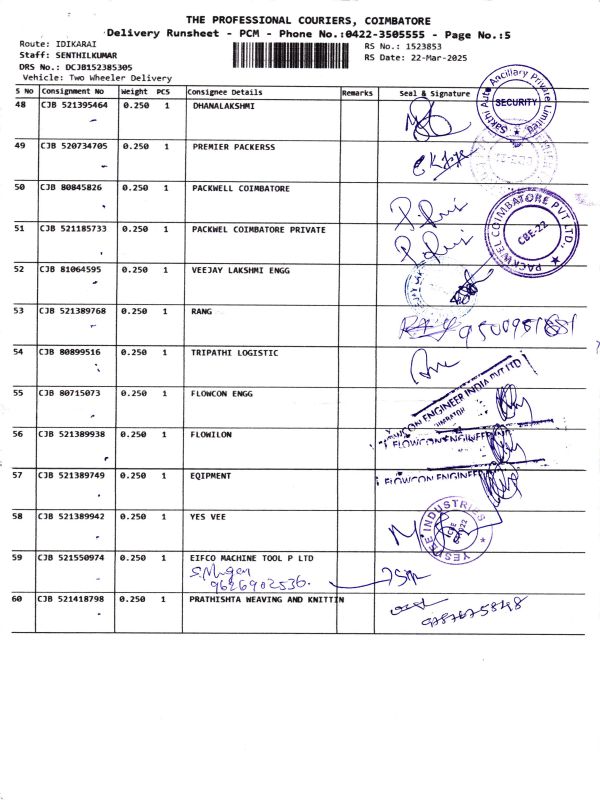 THE PROFESSIONAL COURIERS, COIMBATORE
Delivery Runsheet - PCM - Phone No.:0422-3505555 - Page No.:5
Route: IDIKARAI
RS No.: 1523853
Staff: SENTHILKUMAR
RS Date: 22-Mar-2025
DRS No.: DCJB152385305
Vehicle: Two Wheeler Delivery
S No Consignment No Weight PCS Consignee Details Remarks Seal & Signature
48 CJB 521395464 0.250 1 DHANALAKSHMI
Sakthi Auto Ancillary Private Limited
SECURITY
49 CJB 520734705 0.250 1 PREMIER PACKERSS
50 CJB 80845826 0.250 1 PACKWELL COIMBATORE
51 CJB 521185733 0.250 1 PACKWEL COIMBATORE PRIVATE
PACKWEL COIMBATORE PVT LTD.,
CBE-22
52 CJB 81064595 0.250 1 VEEJAY LAKSHMI ENGG
53 CJB 521389768 0.250 1 RANG
54 CJB 80899516 0.250 1 TRIPATHI LOGISTIC
55 CJB 80715073 0.250 1 FLOWCON ENGG
FLOWCON ENGINEER INDIA PVT LTD
56 CJB 521389938 0.250 1 FLOWILON
FLOWCON ENGINEER
57 CJB 521389749 0.250 1 EQIPMENT
FLOWCON ENGINEER
58 CJB 521389942 0.250 1 YES VEE
YESPEE INDUSTRIES
59 CJB 521550974 0.250 1 EIFCO MACHINE TOOL P LTD
9626902536.
60 CJB 521418798 0.250 1 PRATHISHTA WEAVING AND KNITTIN